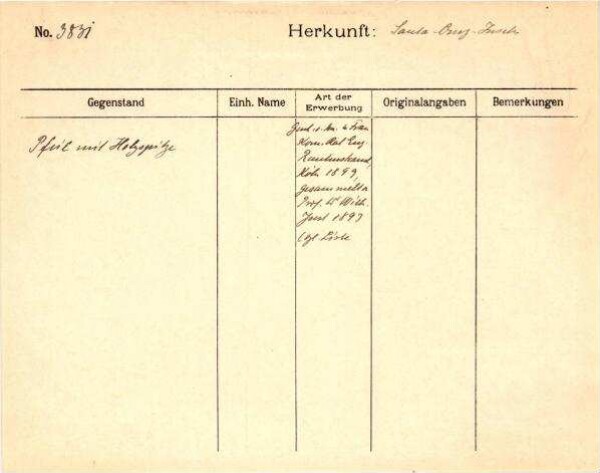 No. 3831 Herkunft: Santa-Cruz-Inseln
Gegenstand Einh. Name Art der Erwerbung Originalangaben Bemerkungen
Pfeil mit Holzspitze
Frau
Kom. Rat Eug.
Rautenstrauch,
Köln 1899,
gesammelt v.
Prof. Dr Wilh.
Joest 1897
Vgl. Liste